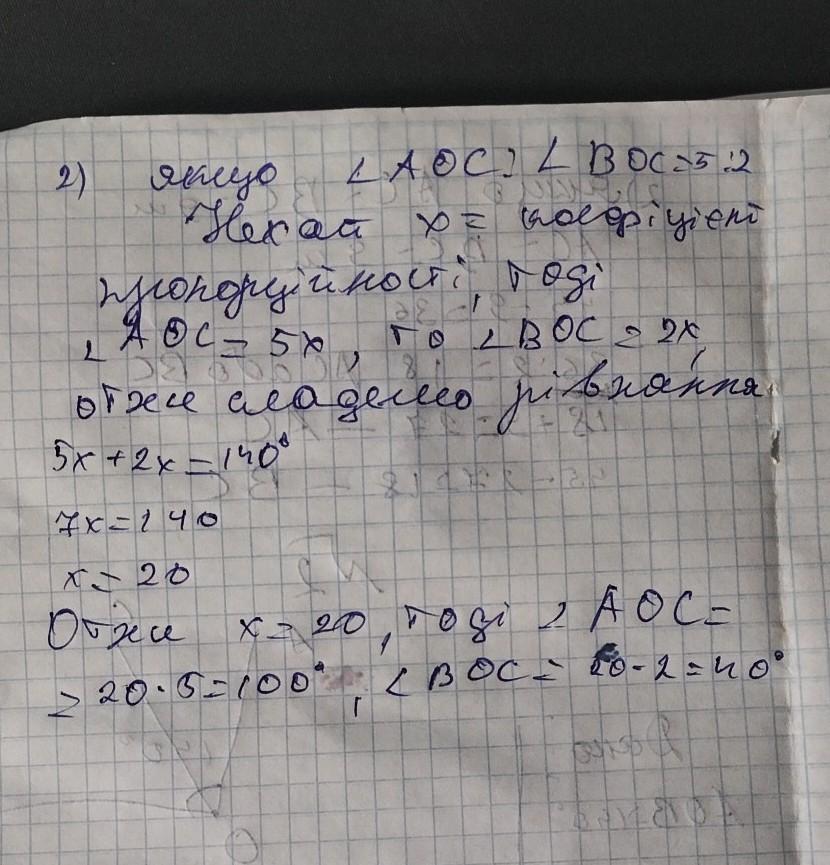 2) якщо ∠AOC : ∠BOC = 5:2
Нехай x = коефіцієнт
пропорційності, тоді
∠AOC = 5x, то ∠BOC = 2x,
отже складемо рівняння
5x + 2x = 140°
7x = 140
x = 20
Отже x = 20, тоді ∠AOC =
= 20·5 = 100°, ∠BOC = 20·2 = 40°